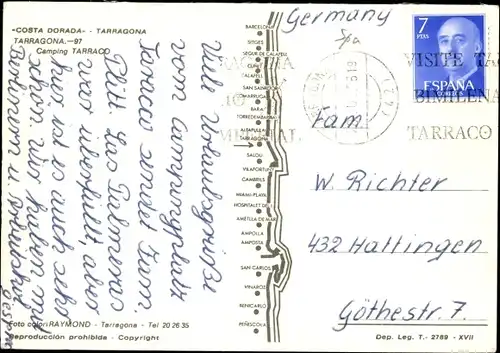 -COSTA DORADA- - TARRAGONA
TARRAGONA.-97
Camping TARRACO
BARCELONA
SITGES
SEGUR DE CALAFELL
CALAFELL
SAN SALVADOR
COMARRUGA
BARA
TORREDEMBARRA
ALTAFULLA
TARRAGONA
SALOU
VILAFORTUNY
CAMBRILS
MIAMI-PLAYA
HOSPITALET DEL I.
AMETLLA DE MAR
AMPOLLA
AMPOSTA
SAN CARLOS
VINAROZ
BENICARLO
PEÑISCOLA
Viele Urlaubsgrüße
vom Campingplatz
Tarraco sendet Fam.
Plitt. Las Palmeras
war überfüllt, aber
hier ist es auch sehr
schön. Wir haben uns
gut
Germany
Spa
7
PTAS
ESPAÑA
CORREOS
VISITE TARRACO
BIMILENARIA
TARRACO
Fam
W. Richter
432 Hattingen
Göthestr. 7.
Foto color RAYMOND - Tarragona - Tel 20 26 35
Reproducción prohibida - Copyright
Dep. Leg. T. - 2789 - XVII